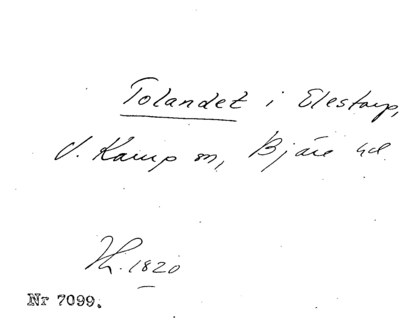 Tolandet i Elestorp,
V. Karup sn, Bjäre hd
Lh. 1820
Nr 7099.